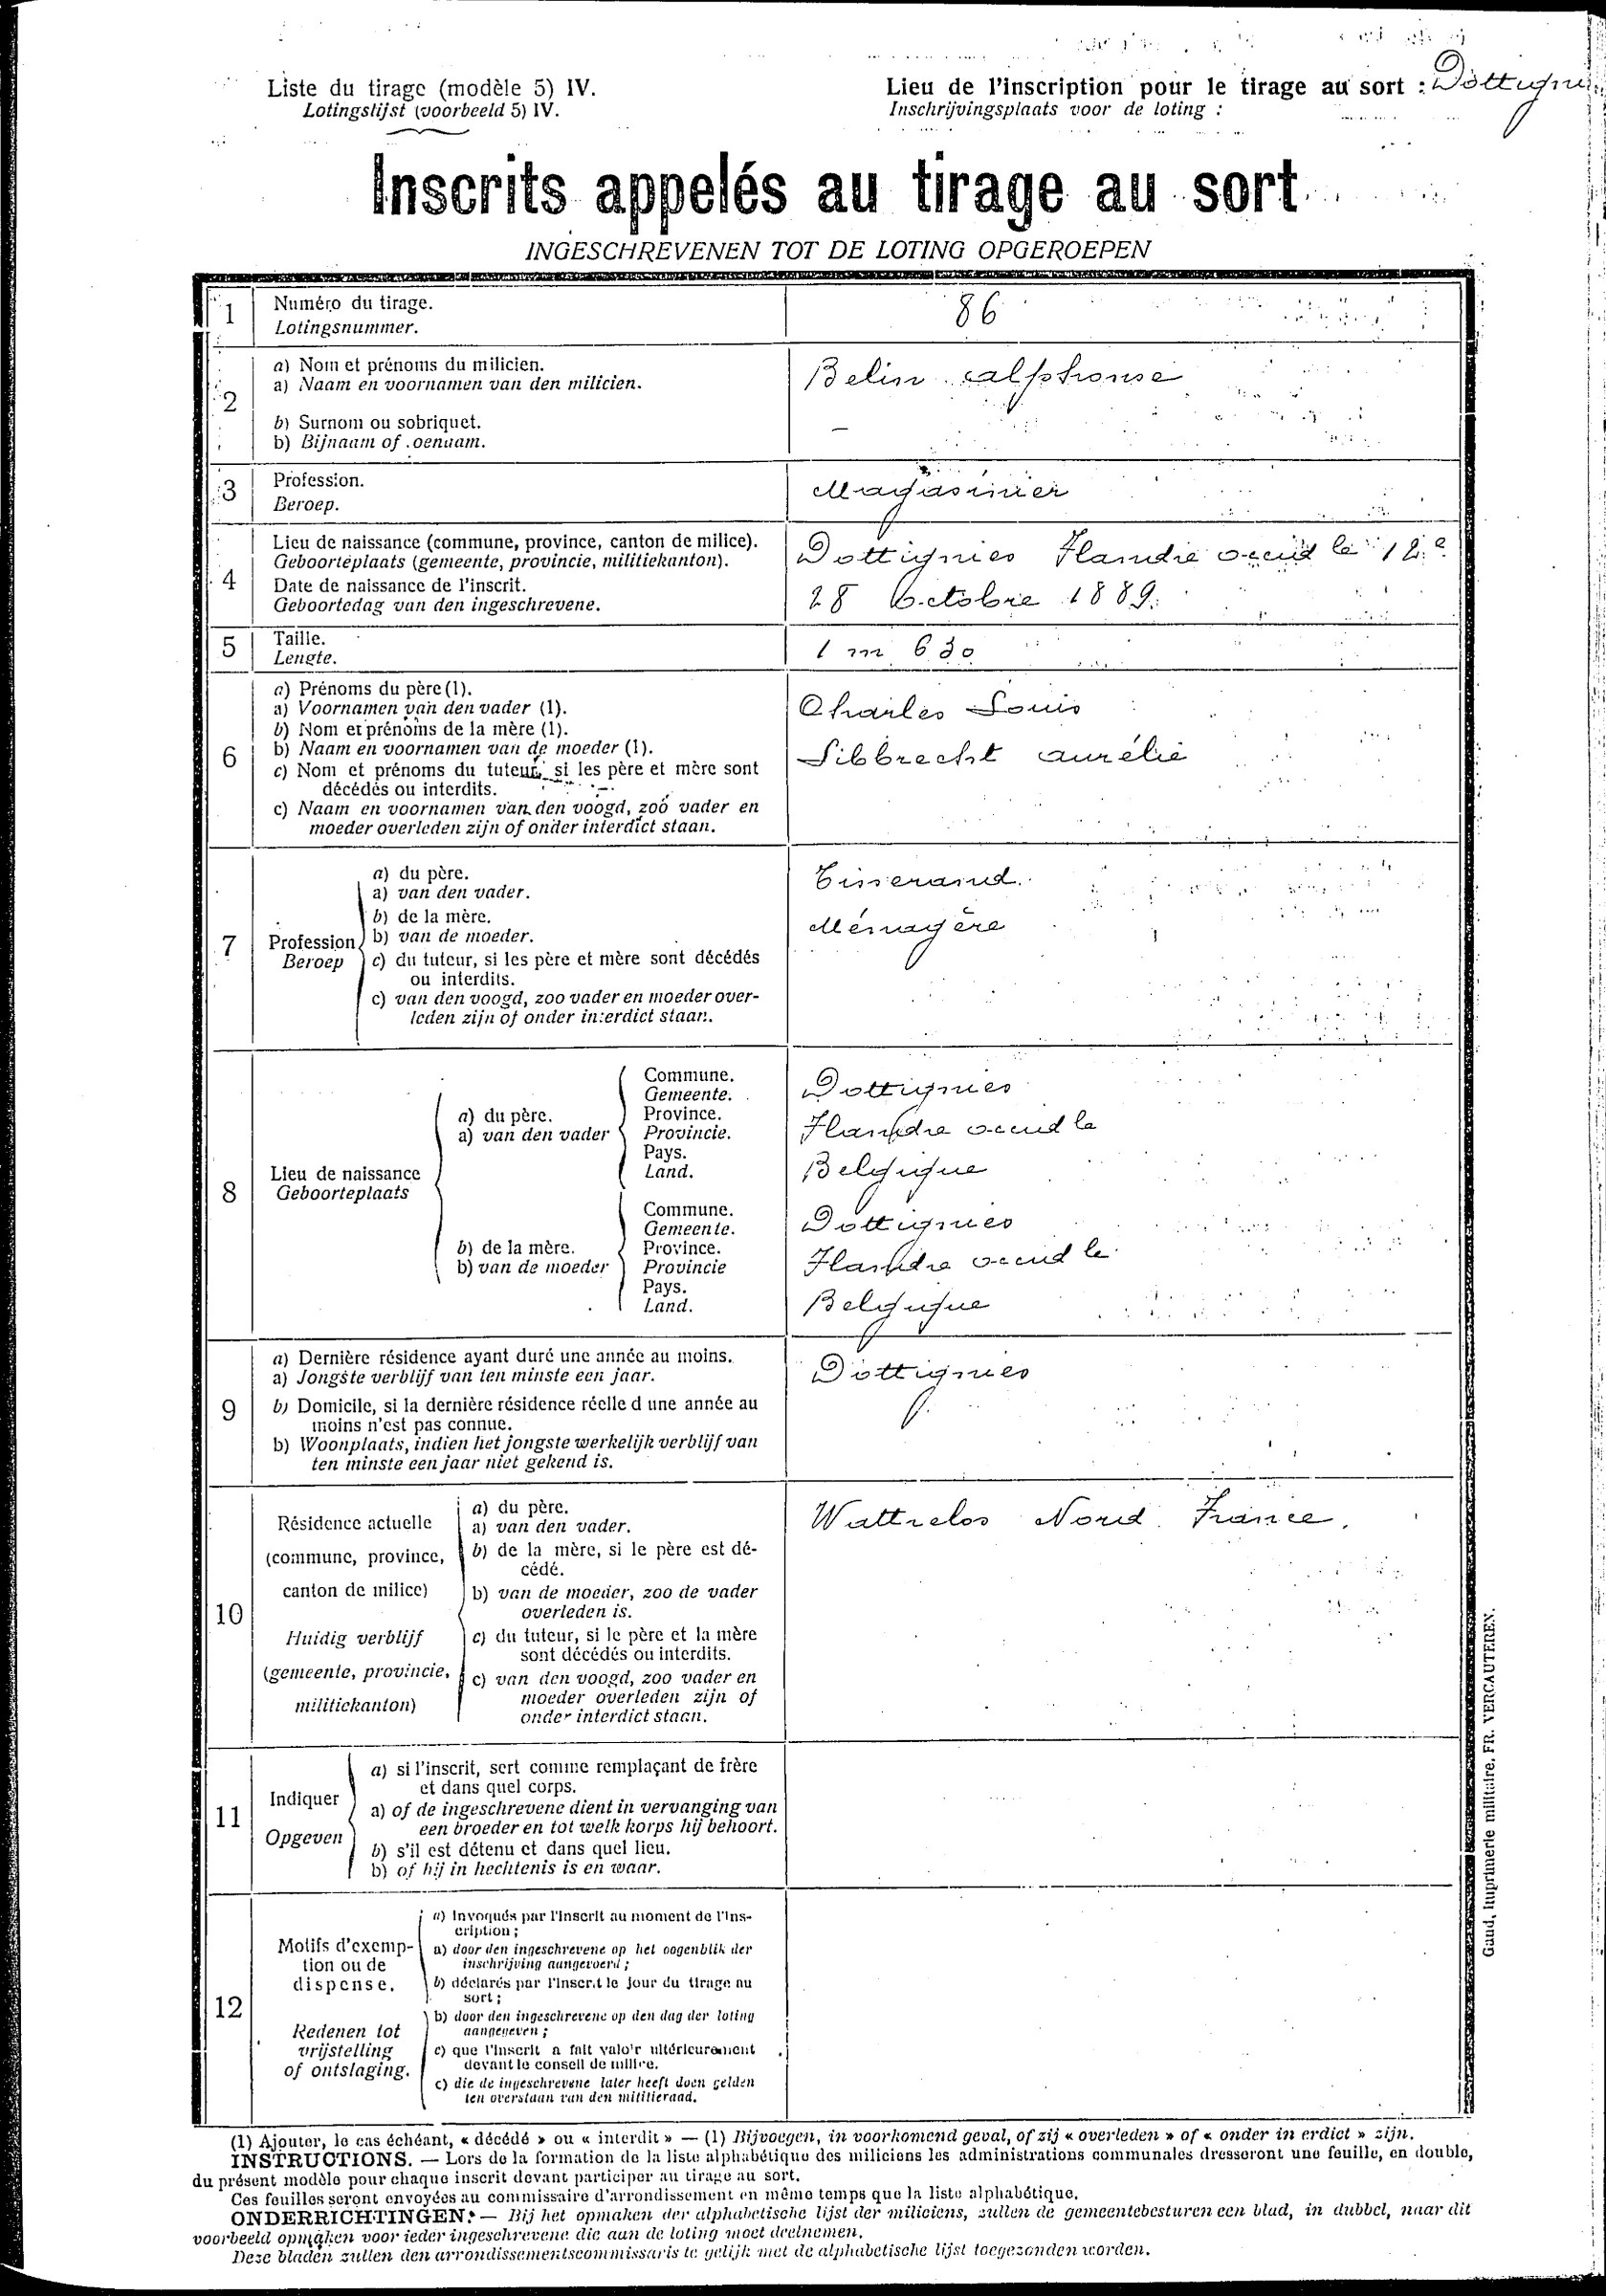 Liste du tirage (modèle 5) IV.
Lotingslijst (voorbeeld 5) IV.
Lieu de l'inscription pour le tirage au sort : Dottignies
Inschrijvingsplaats voor de loting :
Inscrits appelés au tirage au sort
INGESCHREVENEN TOT DE LOTING OPGEROEPEN
1
Numéro du tirage.
Lotingsnummer.
86
2
a) Nom et prénoms du milicien.
a) Naam en voornamen van den milicien.
Belin Alphonse
b) Surnom ou sobriquet.
b) Bijnaam of
—
3
Profession.
Beroep.
Magasinier
4
Lieu de naissance (commune, province, canton de milice).
Geboorteplaats (gemeente, provincie, militiekanton).
Dottignies Flandre occid le
Date de naissance de l'inscrit.
Geboortedag van den ingeschrevene.
28 Octobre 1889.
5
Taille.
Lengte.
1 m 630
6
a) Prénoms du père (1).
a) Voornamen van den vader (1).
Charles Louis
b) Nom et prénoms de la mère (1).
b) Naam en voornamen van de moeder (1).
Libbrecht Aurélie
c) Nom et prénoms du tuteur, si les père et mère sont
décédés ou interdits.
c) Naam en voornamen van den voogd, zoo vader en
moeder overleden zijn of onder interdict staan.
7
Profession
Beroep
a) du père.
a) van den vader.
Tisserand.
b) de la mère.
b) van de moeder.
Ménagère
c) du tuteur, si les père et mère sont décédés
ou interdits.
c) van den voogd, zoo vader en moeder over-
leden zijn of onder interdict staan.
8
Lieu de naissance
Geboorteplaats
a) du père.
a) van den vader
Commune.
Gemeente.
Dottignies
Province.
Provincie.
Flandre occid le
Pays.
Land.
Belgique
b) de la mère.
b) van de moeder
Commune.
Gemeente.
Dottignies
Province.
Provincie
Flandre occid le
Pays.
Land.
Belgique
9
a) Dernière résidence ayant duré une année au moins.
a) Jongste verblijf van ten minste een jaar.
Dottignies
b) Domicile, si la dernière résidence réelle d une année au
moins n'est pas connue.
b) Woonplaats, indien het jongste werkelijk verblijf van
ten minste een jaar niet gekend is.
10
Résidence actuelle
(commune, province,
canton de milice)
Huidig verblijf
(gemeente, provincie,
militiekanton)
a) du père.
a) van den vader.
Wattrelos Nord France.
b) de la mère, si le père est dé-
cédé.
b) van de moeder, zoo de vader
overleden is.
c) du tuteur, si le père et la mère
sont décédés ou interdits.
c) van den voogd, zoo vader en
moeder overleden zijn of
onder interdict staan.
11
Indiquer
Opgeven
a) si l'inscrit, sert comme remplaçant de frère
et dans quel corps.
a) of de ingeschrevene dient in vervanging van
een broeder en tot welk korps hij behoort.
b) s'il est détenu et dans quel lieu.
b) of hij in hechtenis is en waar.
12
Motifs d'exemp-
tion ou de
dispense.
Redenen tot
vrijstelling
of ontslaging.
a) invoqués par l'inscrit au moment de l'ins-
cription ;
a) door den ingeschrevene op het oogenblik der
inschrijving aangevoerd ;
b) déclarés par l'inscrit le jour du tirage au
sort ;
b) door den ingeschrevene op den dag der loting
aangegeven ;
c) que l'inscrit a fait valoir ultérieurement
devant le conseil de milice.
c) die de ingeschrevene later heeft doen gelden
ten overstaan van den militieraad.
Gand, Imprimerie militaire, FR. VERCAUTEREN.
(1) Ajouter, le cas échéant, « décédé » ou « interdit » — (1) Bijvoegen, in voorkomend geval, of zij « overleden » of « onder in erdict » zijn.
INSTRUCTIONS. — Lors de la formation de la liste alphabétique des miliciens les administrations communales dresseront une feuille, en double,
du présent modèle pour chaque inscrit devant participer au tirage au sort.
Ces feuilles seront envoyées au commissaire d'arrondissement en même temps que la liste alphabétique.
ONDERRICHTINGEN. — Bij het opmaken der alphabetische lijst der miliciens, zullen de gemeentebesturen een blad, in dubbel, naar dit
voorbeeld opmaken voor ieder ingeschrevene die aan de loting moet deelnemen.
Deze bladen zullen den arrondissementscommissaris te gelijk met de alphabetische lijst toegezonden worden.